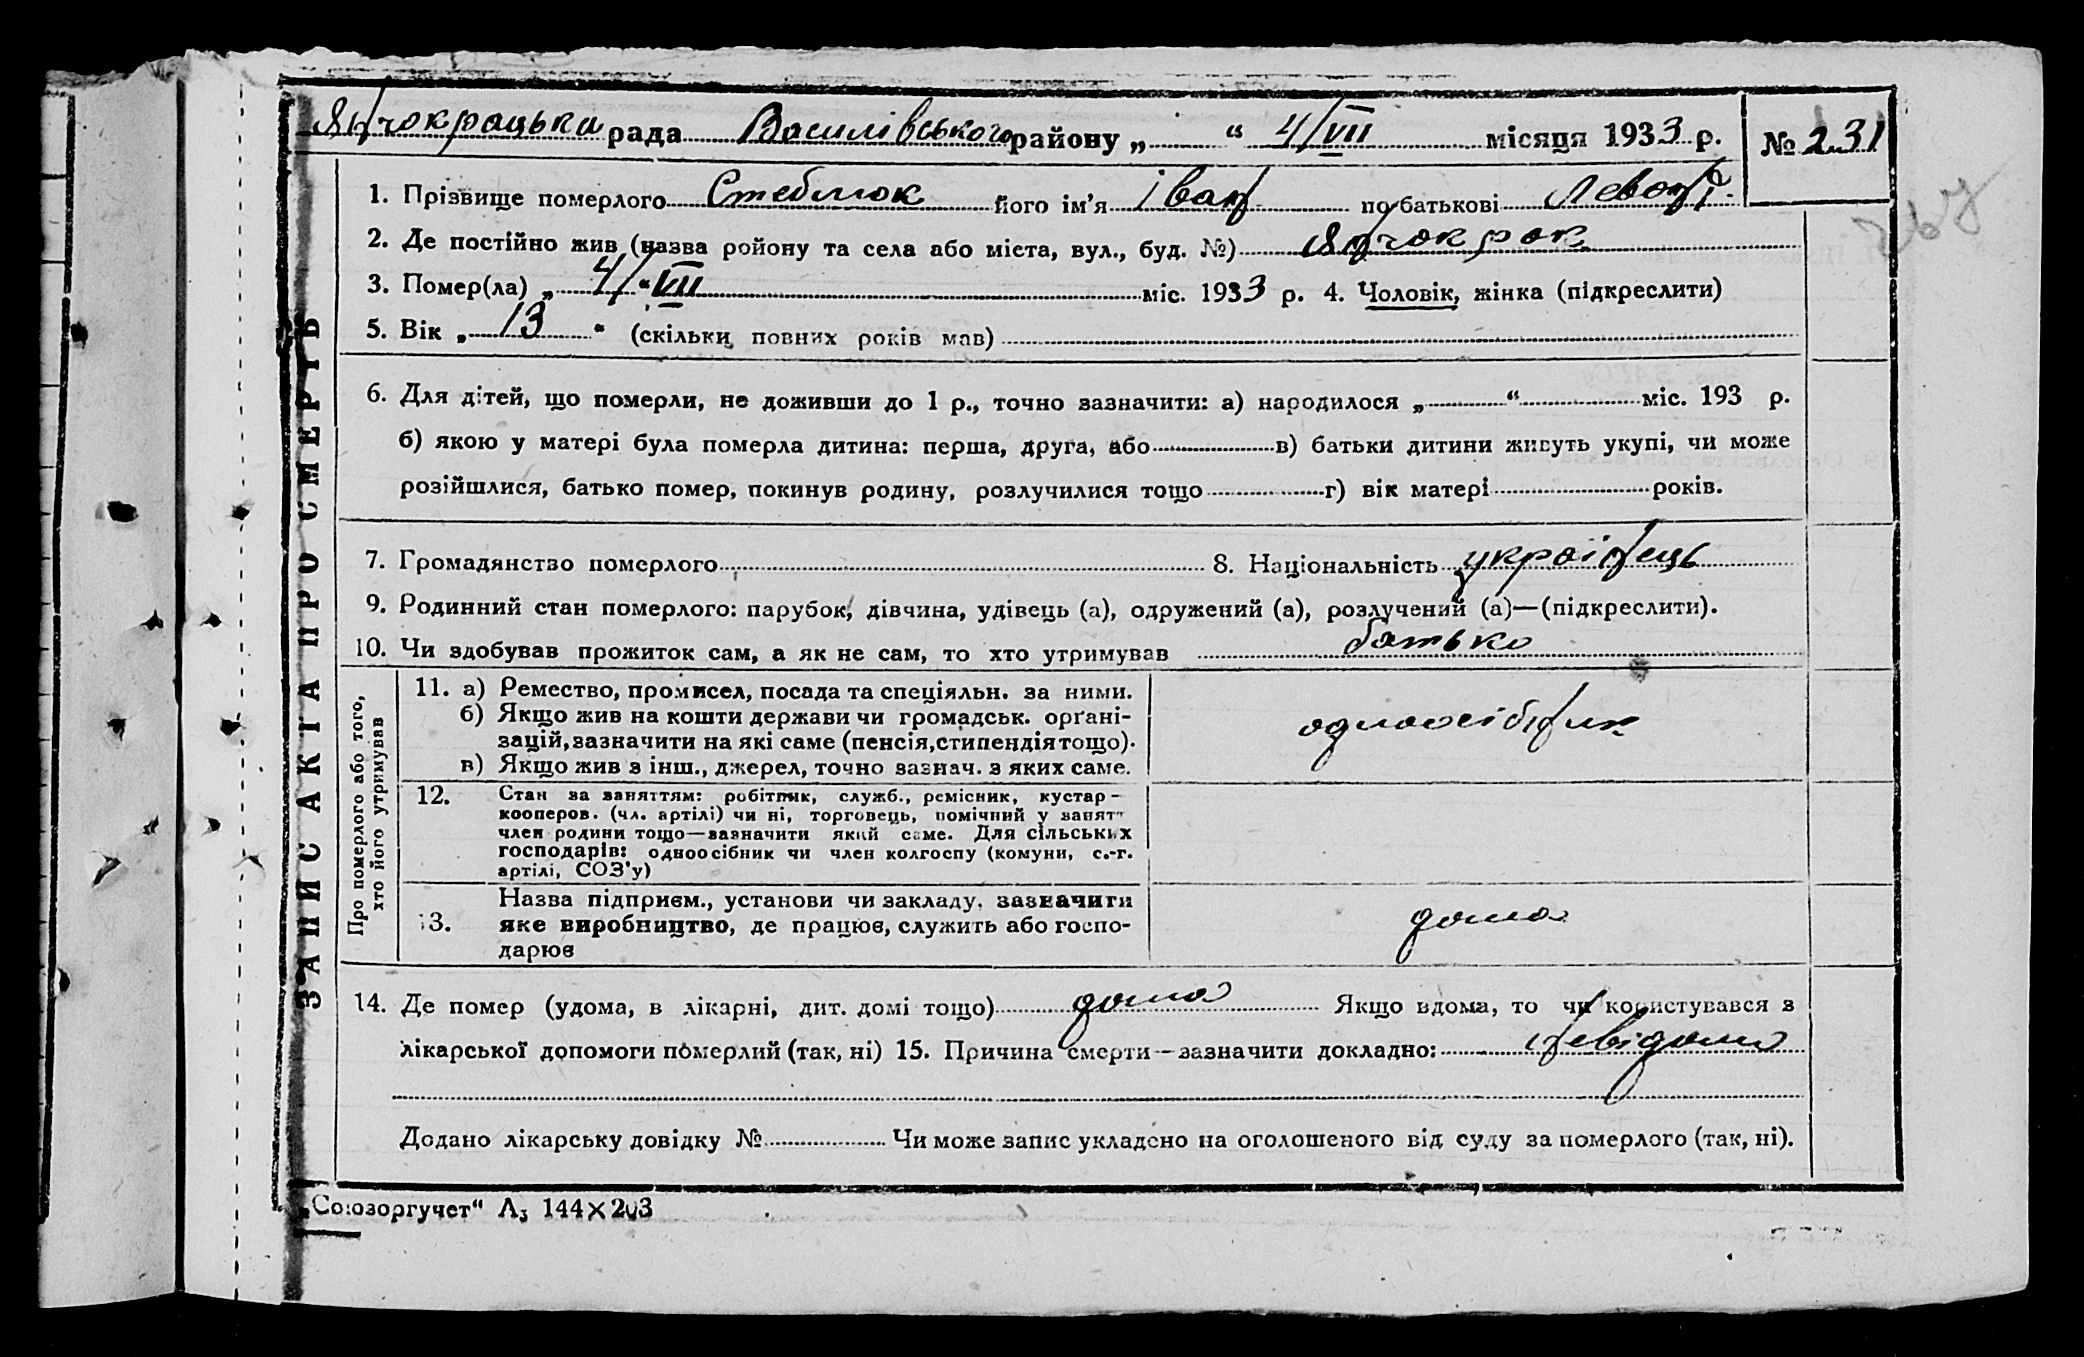 Янчокрацька рада Василівського району „ “ 4/VII місяця 1933 р. № 231
1. Прізвище померлого Стеблюк його ім'я Іван по батькові Левон.
2. Де постійно жив (назва ройону та села або міста, вул., буд. №) Янчокрак
3. Помер(ла) „ 4/“ VII міс. 1933 р. 4. Чоловік, жінка (підкреслити)
5. Вік „ 13 “ (скільки повних років мав)
6. Для дітей, що померли, не доживши до 1 р., точно зазначити: а) народилося „ “ міс. 193 р.
б) якою у матері була померла дитина: перша, друга, або в) батьки дитини живуть укупі, чи може
розійшлися, батько помер, покинув родину, розлучилися тощо г) вік матері років.
7. Громадянство померлого 8. Національність українець
9. Родинний стан померлого: парубок, дівчина, удівець (а), одружений (а), розлучений (а)—(підкреслити).
10. Чи здобував прожиток сам, а як не сам, то хто утримував батько
ЗАПИС АКТА ПРО СМЕРТЬ
Про померлого або того,
хто його утримував
11. а) Ремество, промисел, посада та спеціяльн. за ними.
б) Якщо жив на кошти держави чи громадськ. орґані-
зацій, зазначити на які саме (пенсія, стипендія тощо).
в) Якщо жив з інш., джерел, точно зазнач. з яких саме.
одноосібник
12. Стан за заняттям: робітник, служб., ремісник, кустар-
кооперов. (чл. артілі) чи ні, торговець, помічний у занят
член родини тощо—зазначити який саме. Для сільських
господарів: одноосібник чи член колгоспу (комуни, с.-г.
артілі, СОЗ'у)
13. Назва підприєм., установи чи закладу, зазначити
яке виробництво, де працює, служить або госпо-
дарює
дома
14. Де помер (удома, в лікарні, дит. домі тощо) дома Якщо вдома, то чи користувався з
лікарської допомоги померлий (так, ні) 15. Причина смерти—зазначити докладно: невідомо
Додано лікарську довідку № Чи може запис укладено на оголошеного від суду за померлого (так, ні).
„Союзоргучет“ Л₃ 144×203